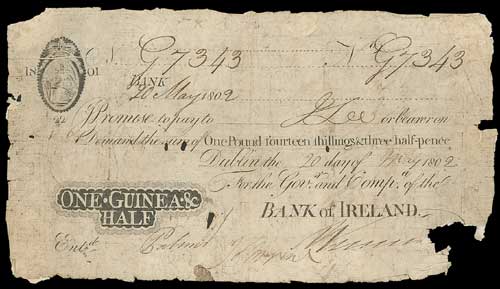 G.7343 No G.7343
18 01
BANK
20 May 1802
I Promise to pay to J Lee or bearer on
Demand the sum of One Pound fourteen shillings & three half-pence
Dublin the 20 day of May 1802
For the Govr. and Compa. of the
ONE·GUINEA &
HALF
BANK of IRELAND.
Entd.